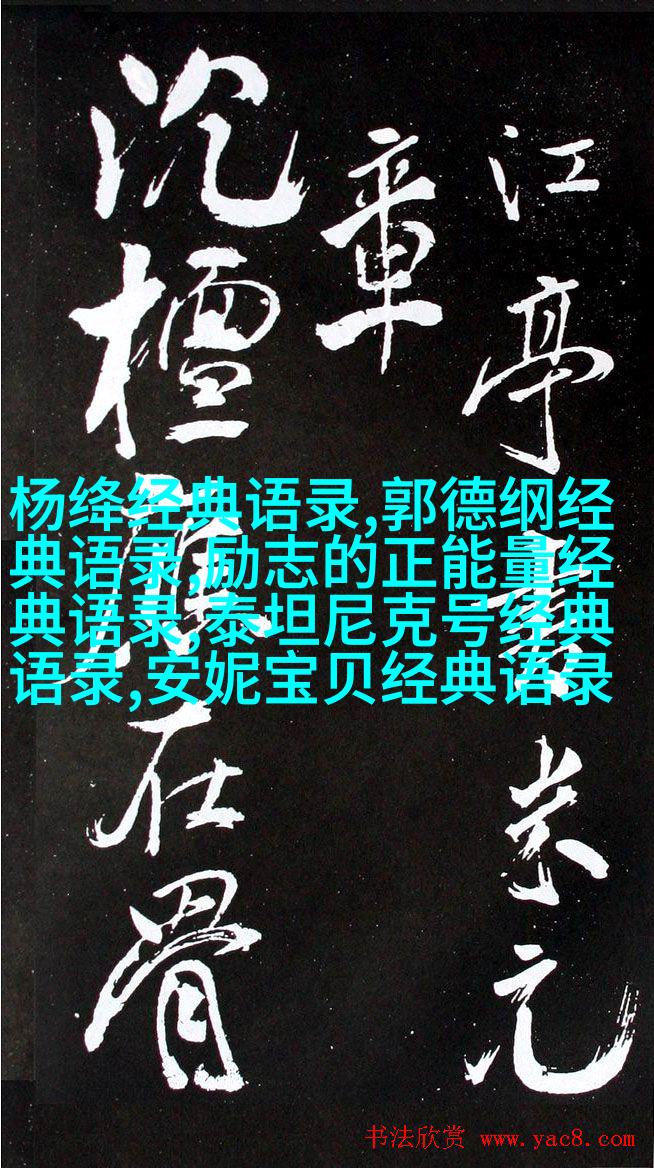 江亭書米元
章
沉檀在骨
杨绛经典语录,郭德纲经
典语录,励志的正能量经
典语录,泰坦尼克号经典
语录,安妮宝贝经典语录
书法欣赏 www.yac8.com